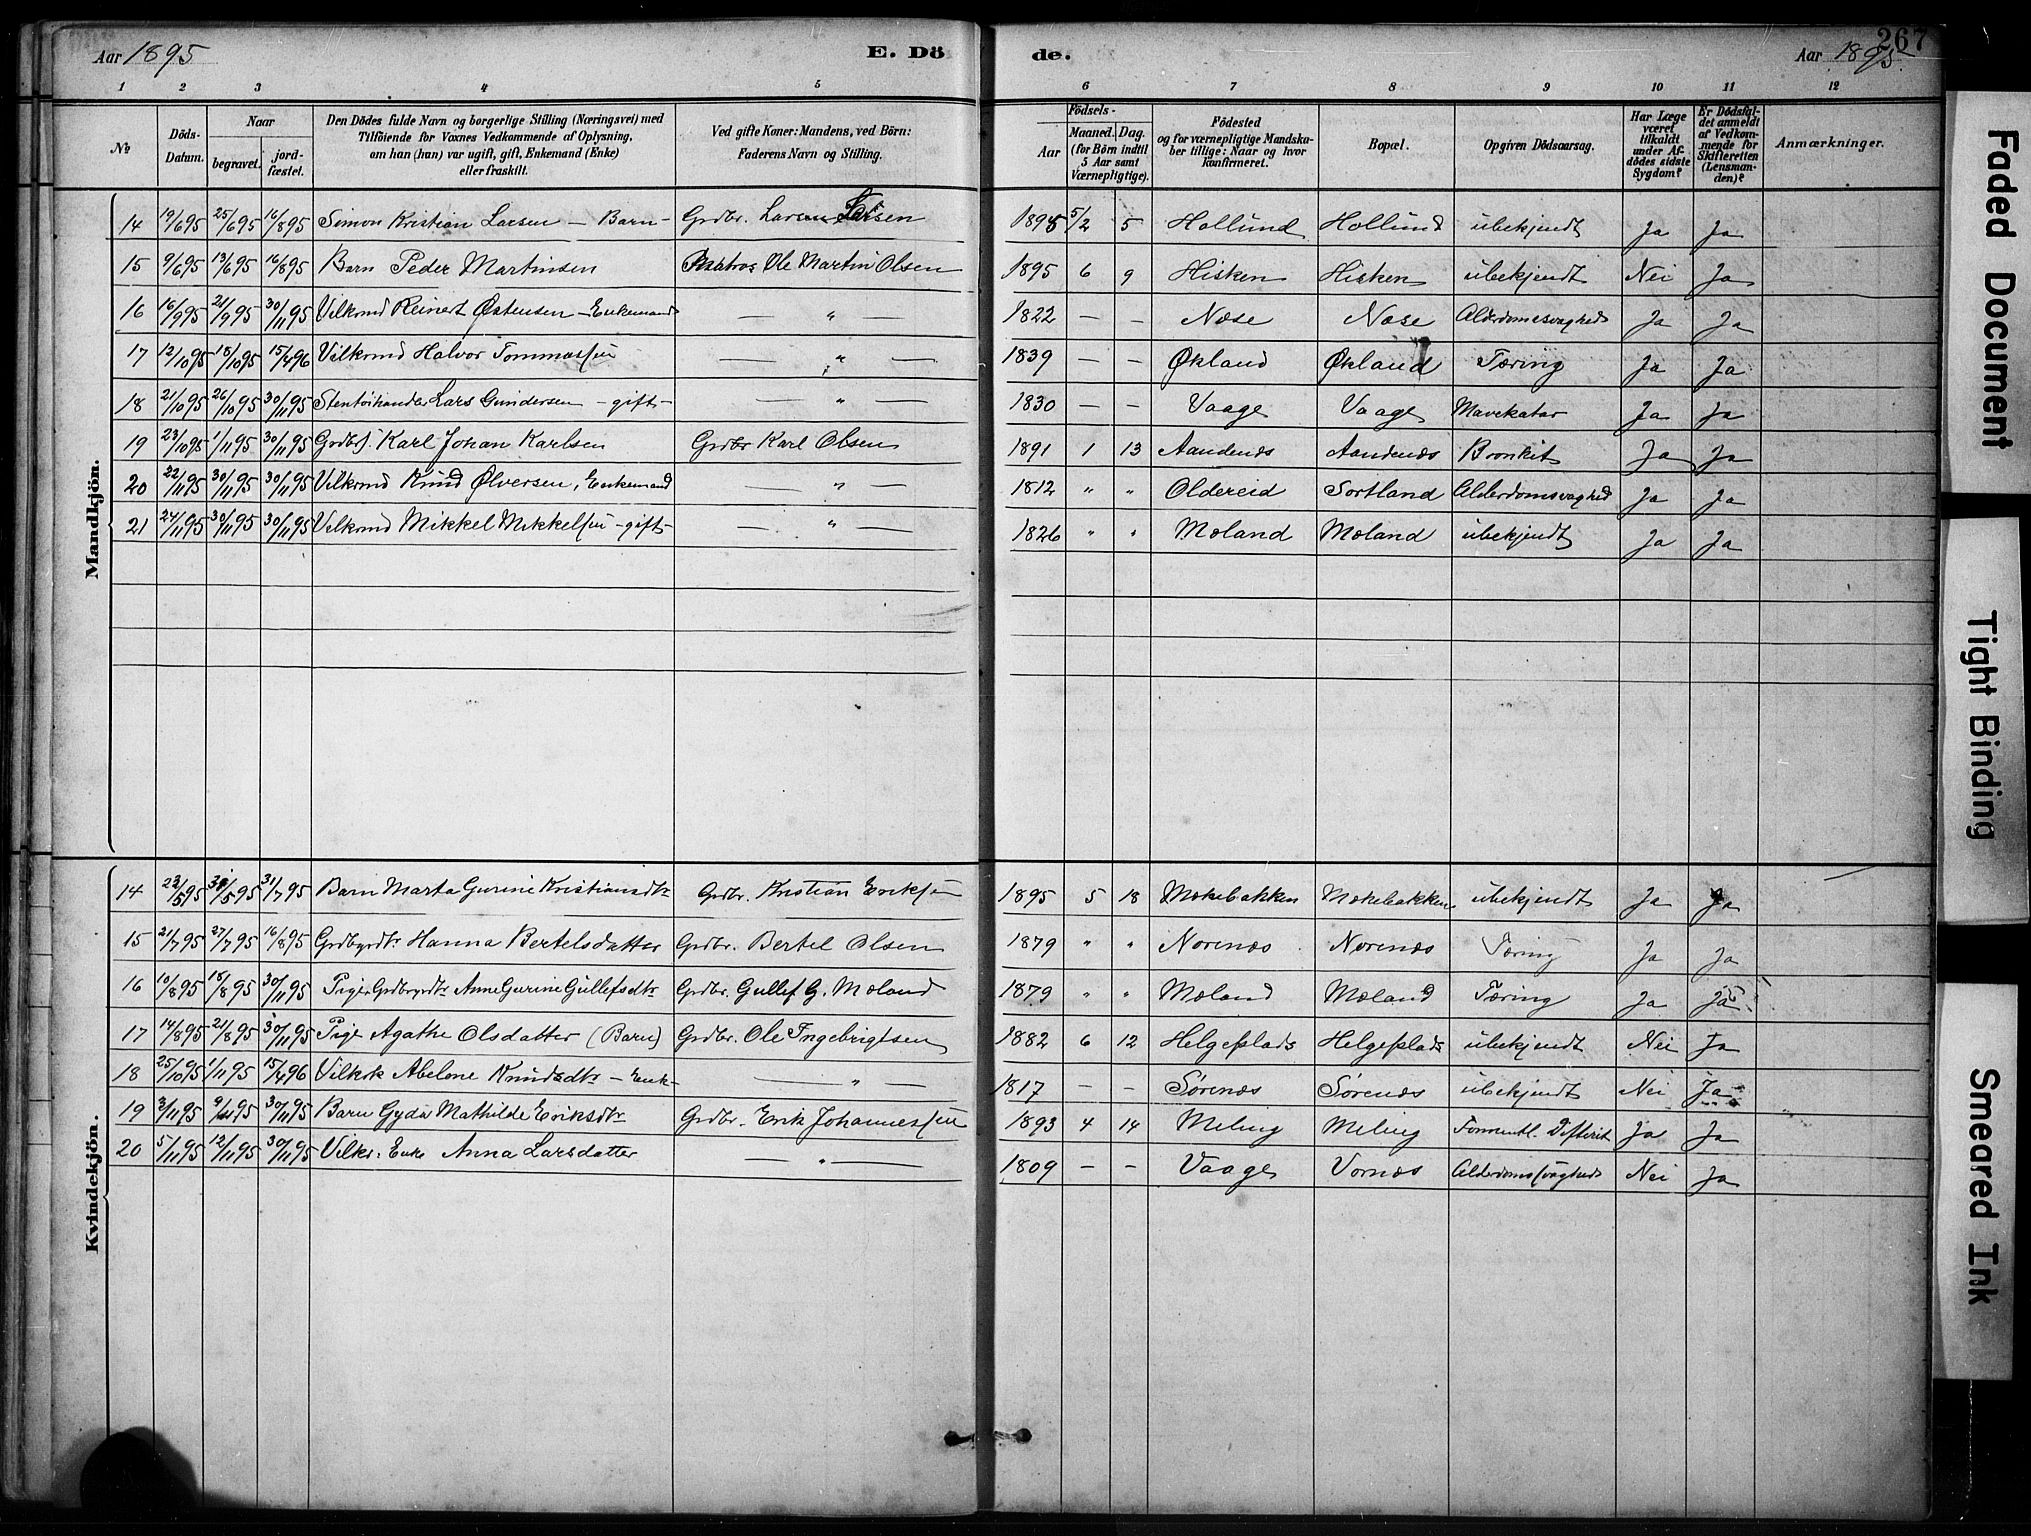 Aar 1895 E. Dö
de. Aar 1895. 267
1 2 3 4 5 6 7 8 9 10 11 12
№ Döds-Datum. Naar begravet. jord-fæstet. Den Dödes fulde Navn og borgerlige Stilling (Næringsvei) med Tilföiende for Voxnes Vedkommende af Oplysning, om han (hun) var ugift, gift, Enkemand (Enke) eller fraskilt. Ved gifte Koner: Mandens, ved Börn: Faderens Navn og Stilling. Födsels- Aar Maaned. Dag. (for Börn indtil 5 Aar samt Værnepligtige). Födested og for værnepligtige Mandskaber tillige: Naar og hvor konfirmeret. Bopæl. Opgiven Dödsaarsag. Har Læge været tilkaldt under Afdödes sidste Sygdom? Er Dödsfaldet anmeldt af Vedkommende for Skifteretten (Lensmanden)? Anmærkninger.
Mandkjön.
14 19/6 95 25/6 95 16/8 95 Simon Kristian Larsen — Barn — Grdbr. Larsen 1895 5/2 5 Hollund Hollund ubekjendt Ja Ja
15 9/6 95 13/6 95 16/8 95 Barn Peder Martinsen Matros Ole Martin Olsen 1895 6 9 Hisken Hisken ubekjendt Nei Ja
16 16/9 95 21/9 95 30/11 95 Vilkrmd Reinert Østensen — Enkemand — " — 1822 — — Næse Næse Alderdomssvaghed Ja Ja
17 12/10 95 18/10 95 15/4 96 Vilkrmd Halvor Tommassen — " — 1839 — — Økland Økland Tæring Ja Ja
18 21/10 95 26/10 95 30/11 95 Stentöihandler Lars Gundersen — gift — — " — 1830 — — Vaage Vaage Mavekatar Ja Ja
19 23/10 95 1/11 95 30/11 95 Grdbrs. Karl Johan Karlsen Grdbr Karl Olsen 1891 1 13 Aandenæs Aandenæs Bronkit Ja Ja
20 22/11 95 30/11 95 30/11 95 Vilkrmd Knud Ølversen, Enkemand — " — 1812 " " Oldereid Sortland Alderdomsvaghed Ja Ja
21 24/11 95 30/11 95 30/11 95 Vilkrmd Mikkel Mikkelsen — gift — — " — 1826 " " Mæland Mæland ubekjendt Ja Ja
Kvindekjön.
14 23/5 95 31/5 95 31/7 95 Barn Marta Gurine Kristiansdtr Grdbr. Kristian Eriksen 1895 5 18 Mækebakken Mækebakken ubekjendt Ja Ja
15 21/7 95 27/7 95 16/8 95 Grdbyrdtr Hanna Bertelsdatter Grdbr. Bertel Olsen 1879 " " Norenæs Norenæs Tæring Ja Ja
16 10/8 95 18/8 95 30/11 95 Pige Grdbyrdtr Anne Gurine Gullefsdtr Grdbr. Gullef G. Mæland 1879 " " Mæland Mæland Tæring Ja Ja
17 14/8 95 21/8 95 30/11 95 Pige Agathe Olsdatter (Barn) Grdbr. Ole Ingebrigtsen 1882 6 12 Helgeplads Helgeplads ubekjendt Nei Ja
18 25/10 95 1/11 95 15/4 96 Vilkrk Abelone Knudsdtr — Enk — — " — 1817 — — Sørenæs Sørenæs ubekjendt Nei Ja
19 3/11 95 9/11 95 30/11 95 Barn Gyda Mathilde Eriksdtr Grdbr. Erik Johannessen 1893 4 14 Meling Meling Formentl. Difterit Ja Ja
20 5/11 95 12/11 95 30/11 95 Vilkr. Enke Anna Larsdatter — " — 1809 — — Vaage Vornæs Alderdomssvaghed Nei Ja
Faded Document
Tight Binding
Smeared Ink